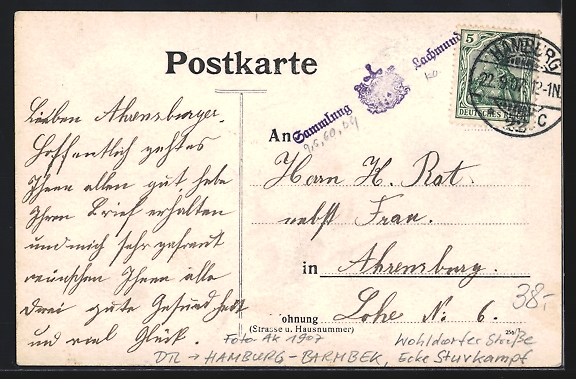 Postkarte
Sammlung Lachmund
25,60,04
5
DEUTSCHES
HAMBURG
12-1N
C
Lieben Ahrensburger.
Hoffentlich geht es
Ihnen allen gut, habe
Ihren Brief erhalten
und mich sehr gefreut
wünschen Ihnen alle
drei gute Gesundheit
und viel Glück.
An
Herrn H. Rat.
nebst Frau.
in Ahrensburg.
ohnung Lohe No 6.
(Strasse u. Hausnummer)
38,-
Foto AK 1907 Wohldorfer Straße
DR → HAMBURG-BARMBEK, Ecke Sturkampf